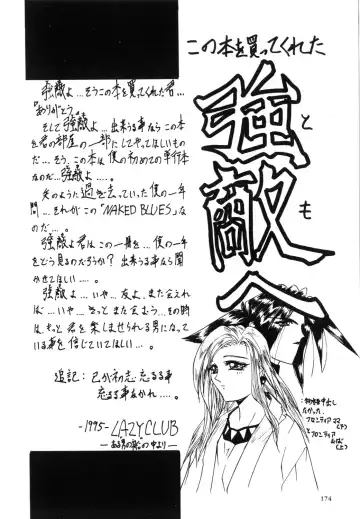 この本を買ってくれた
強敵へ
とも
強敵よ…そうこの本を買ってくれた君…
『ありがとう。』
そして強敵よ…出来うる事ならこの本
を君の部屋の一部にしてやってほしいもの
だ…そう、この本は僕の初めての単行本
なのだ…強敵よ……。
矢のように過ぎ去っていった僕の一年
間…それがこの「NAKED BLUES」な
のだ…。
強敵よ君はこの一冊を…僕の一年
をどう見るのだろうか?出来うる事なら聞
かせてほしい……。
強敵よ…いや…友よ、また会えれ
ば…いや…きっとまた会おう…その時
は、もっと君を楽しませられる男になって
いる事を信じていてほしい…。
追記:己が初志、忘るる事
忘るる事なかれ…。
-1995- LAZY CLUB
―ある男の船の中より―
たかった、
フロンティア
と
フロンティア
174